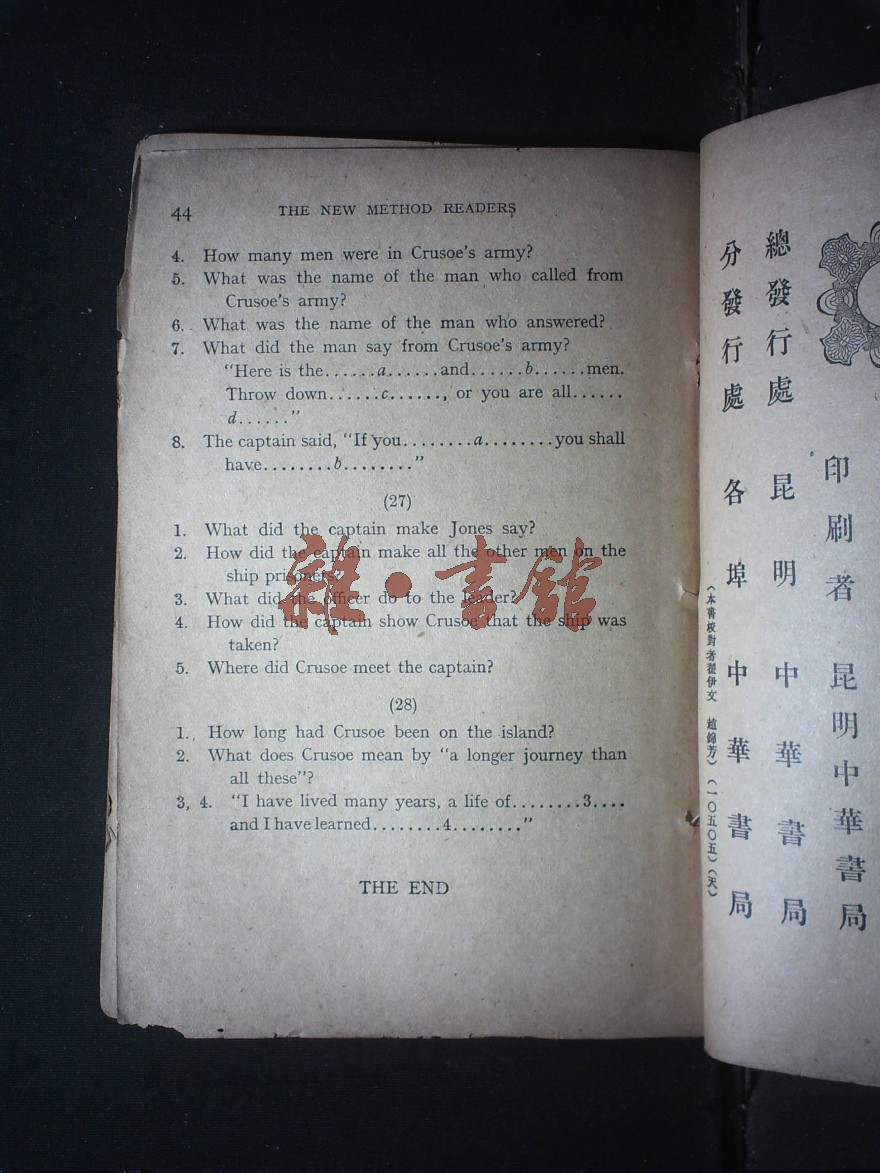 44 THE NEW METHOD READERS
4. How many men were in Crusoe's army?
5. What was the name of the man who called from
Crusoe's army?
6. What was the name of the man who answered?
7. What did the man say from Crusoe's army?
"Here is the......a......and......b......men.
Throw down......c......, or you are all......
d......"
8. The captain said, "If you........a........you shall
have........b........"
(27)
1. What did the captain make Jones say?
2. How did the captain make all the other men on the
ship prisoners?
3. What did the officer do to the leader?
4. How did the captain show Crusoe that the ship was
taken?
5. Where did Crusoe meet the captain?
(28)
1. How long had Crusoe been on the island?
2. What does Crusoe mean by "a longer journey than
all these"?
3, 4. "I have lived many years, a life of........3....
and I have learned........4........"
THE END
雜·書館
印刷者 昆明中華書局
總發行處 昆明 中華書局
分發行處 各埠 中華書局
(本書校對者瞿伊文 趙錦芳)(一〇五〇五)(天)